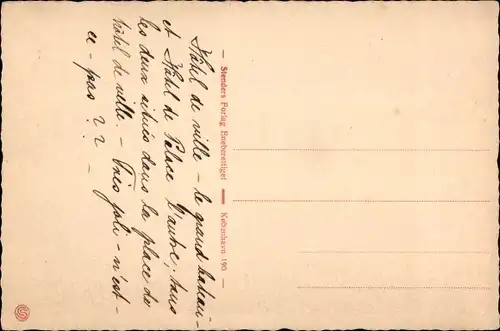 Hôtel de ville - le grand bateau -
et Hôtel de Palace l'autre; tous
les deux situés dans la place de
hôtel de ville. - Très joli - n'est -
ce - pas ?? -
— Stenders Forlag Eneberettiget — København 190 —
S